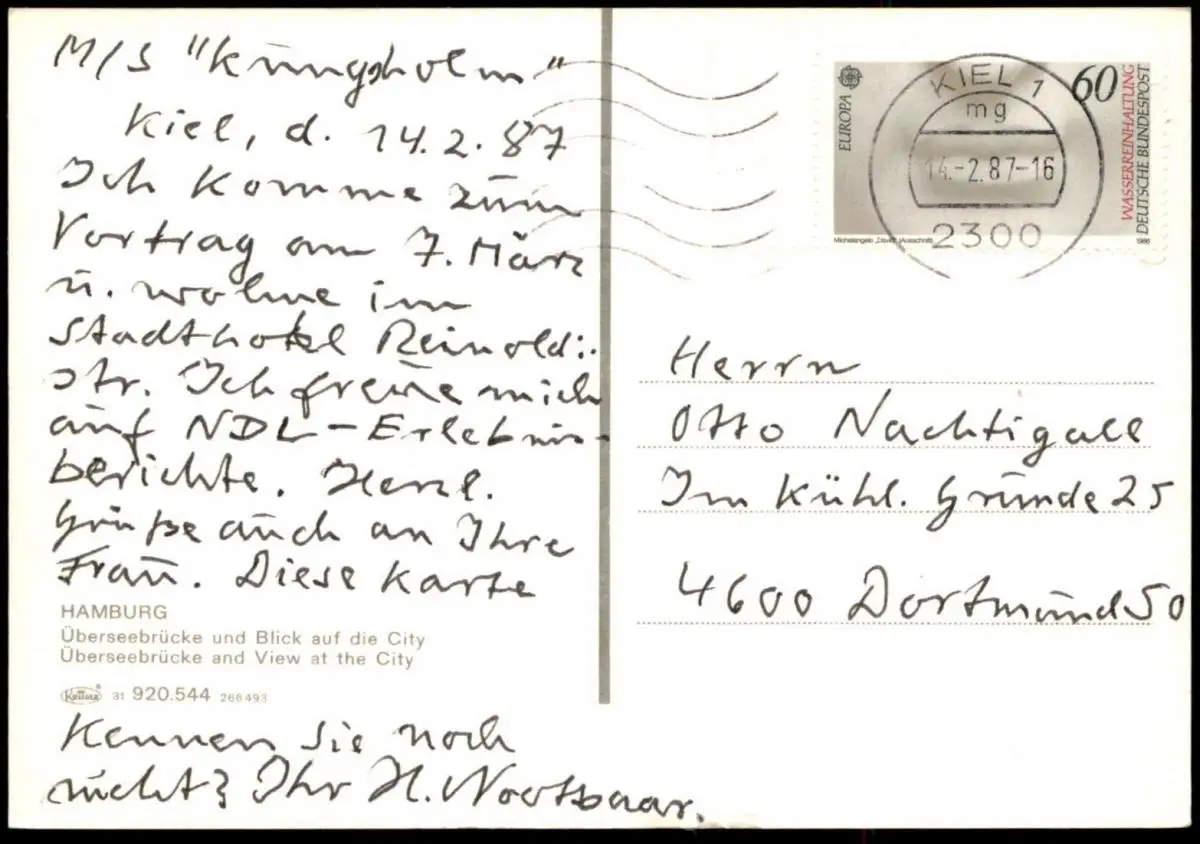 M/S "Kungsholm"
Kiel, d. 14.2.87
Ich komme zum
Vortrag am 7. März
u. wohne im
Stadthotel Reinoldi-
str. Ich freue mich
auf NDL-Erlebnis-
berichte. Herzl.
Grüße auch an Ihre
Frau. Diese Karte
HAMBURG
Überseebrücke und Blick auf die City
Überseebrücke and View at the City
Krüger 31 920.544 266493
Kennen Sie noch
nicht? Ihr H. Nootbaar.
EUROPA
60
WASSERREINHALTUNG
DEUTSCHE BUNDESPOST
Michelangelo „David“ (Ausschnitt)
1986
KIEL 1
mg
14.-2.87-16
2300
Herrn
Otto Nachtigall
Im Kühl. Grunde 25
4600 Dortmund 50